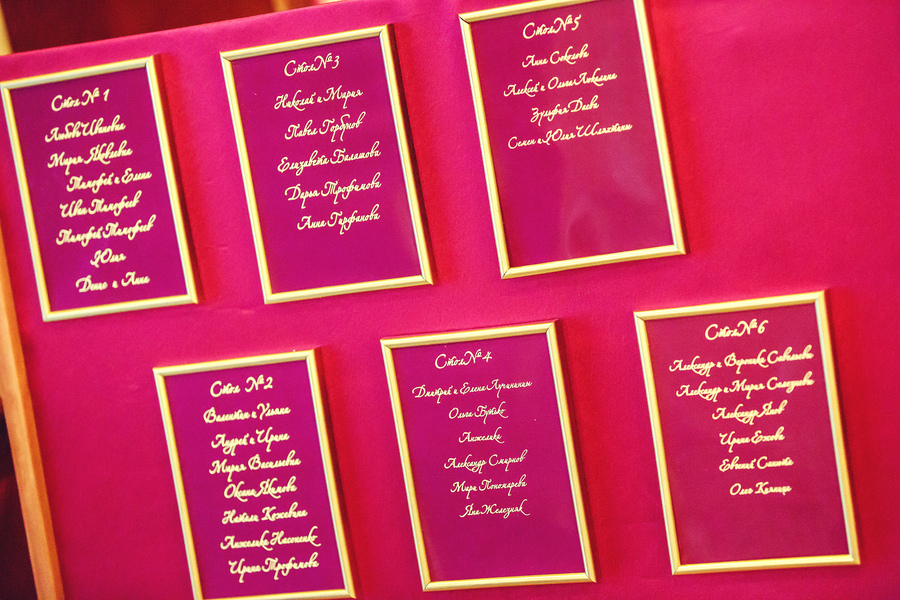 Стол № 1
Любовь Ивановна
Мария Яковлевна
Тимофей и Елена
Иван Тимофеев
Тимофей Тимофеев
Юлия
Денис и Анна
Стол № 2
Валентин и Ульяна
Андрей и Ирина
Мария Васильевна
Оксана Якимова
Натали Кожевина
Анжелика Насоненко
Ирина Трофимова
Стол № 3
Николай и Мария
Павел Горбунов
Елизавета Балашова
Дарья Трофимова
Анна Гирфанова
Стол № 4
Дмитрий и Елена Лучинины
Ольга Бутько
Анжелика
Александр Смирнов
Мари Пономарева
Яна Железняк
Стол № 5
Анна Соколова
Алексей и Ольга Люкшины
Зульфия Даева
Семен и Юлия Шляхтины
Стол № 6
Александр и Вероника Савельевы
Александр и Мария
Александр Янов
Ирина Ежова
Евгений
Олег